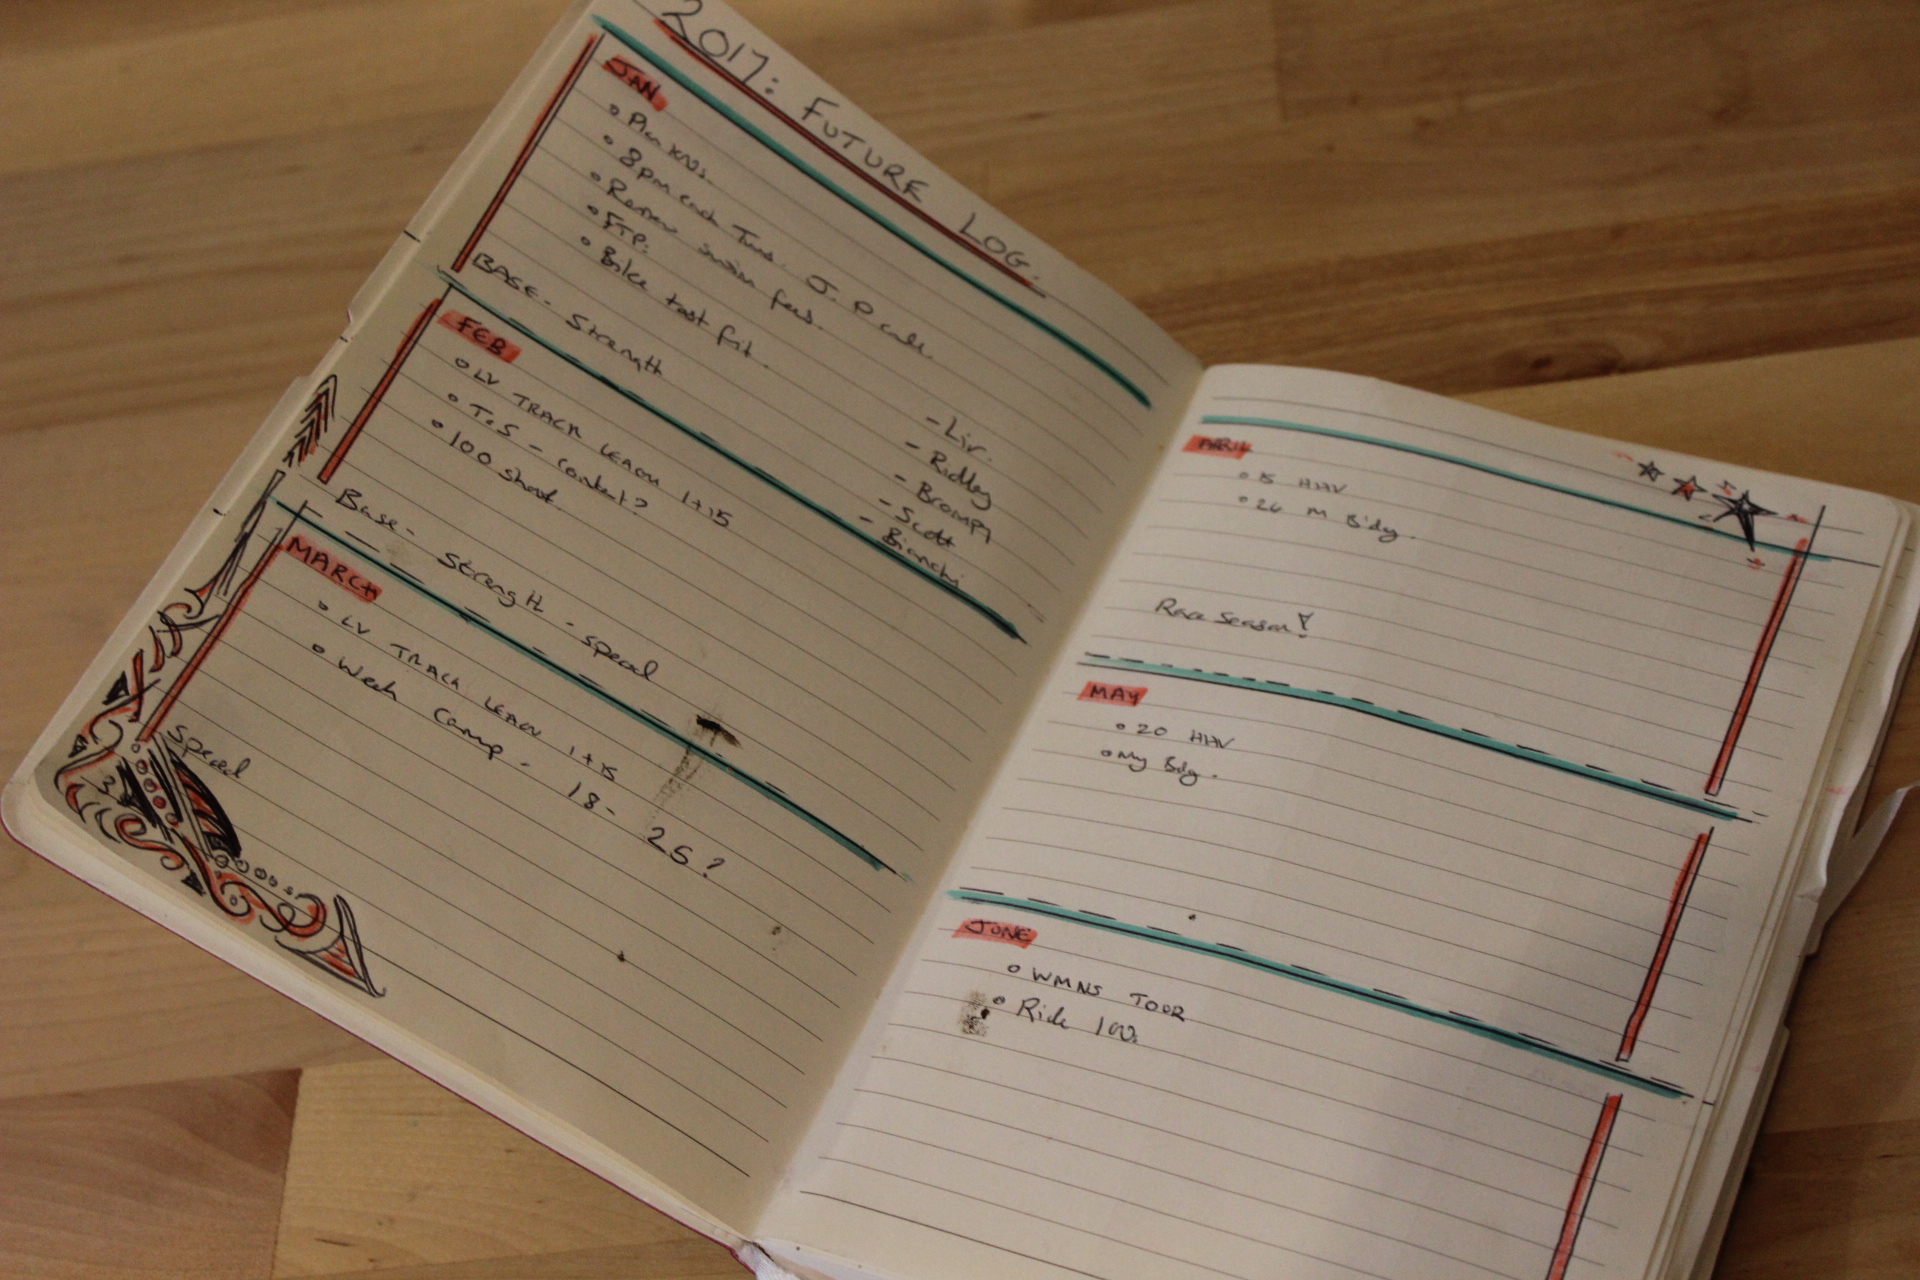 2017: FUTURE LOG.
JAN
Plan KNS.
8pm each Tues. J. P call.
Review swim fees.
FTP.
Bike test fit.
BASE - Strength
FEB
LV TRACK LEAGUE 1+15
ToS - content?
100 shoot.
- Liv.
- Ridley
- Brompt
- Scott
- Bianchi
Base - Strength - speed
MARCH
LV TRACK LEAGUE 1+15
Week Camp - 18 - 25?
Speed
APRIL
15 HHV
26 M B'day.
Race Season!
MAY
20 HHV
My Bdy.
JUNE
WMNS TOUR
Ride 100.